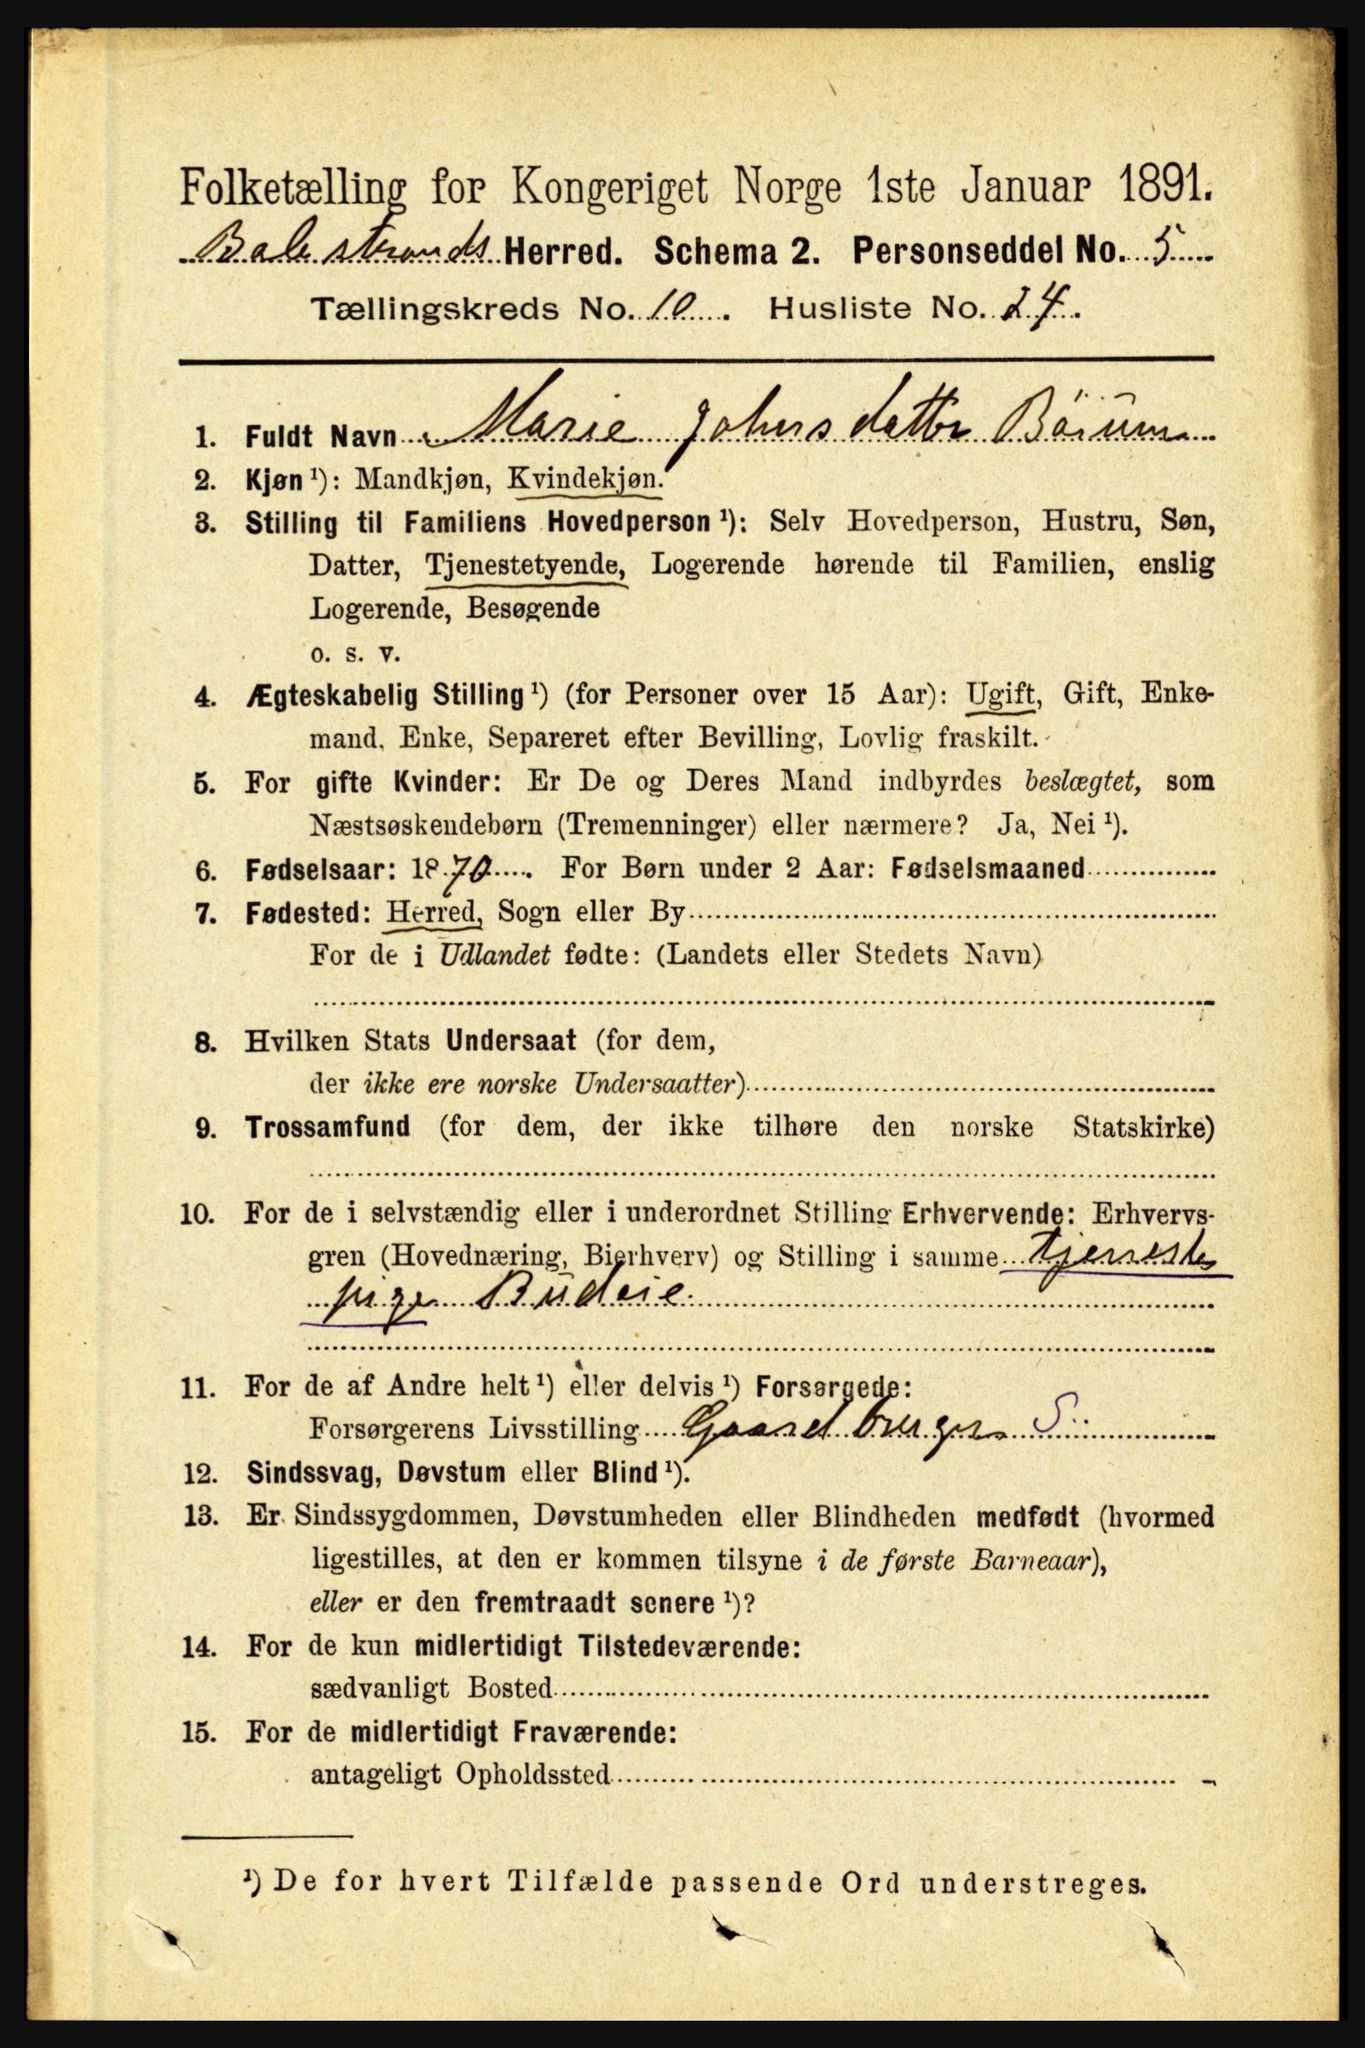 Folketælling for Kongeriget Norge 1ste Januar 1891.
Balestrands Herred. Schema 2. Personseddel No. 5
Tællingskreds No. 10. Husliste No. 24.
1. Fuldt Navn Marie Johnsdatter Børum
2. Kjøn ¹): Mandkjøn, Kvindekjøn.
3. Stilling til Familiens Hovedperson ¹): Selv Hovedperson, Hustru, Søn,
Datter, Tjenestetyende, Logerende hørende til Familien, enslig
Logerende, Besøgende
o. s. v.
4. Ægteskabelig Stilling ¹) (for Personer over 15 Aar): Ugift, Gift, Enke-
mand, Enke, Separeret efter Bevilling, Lovlig fraskilt.
5. For gifte Kvinder: Er De og Deres Mand indbyrdes beslægtet, som
Næstsøskendebørn (Tremenninger) eller nærmere? Ja, Nei ¹).
6. Fødselsaar: 1870. For Børn under 2 Aar: Fødselsmaaned
7. Fødested: Herred, Sogn eller By
For de i Udlandet fødte: (Landets eller Stedets Navn)
8. Hvilken Stats Undersaat (for dem,
der ikke ere norske Undersaatter)
9. Trossamfund (for dem, der ikke tilhøre den norske Statskirke)
10. For de i selvstændig eller i underordnet Stilling Erhvervende: Erhvervs-
gren (Hovednæring, Bierhverv) og Stilling i samme tjeneste
pige Budeie.
11. For de af Andre helt ¹) eller delvis ¹) Forsørgede:
Forsørgerens Livsstilling Gaardbruger S
12. Sindssvag, Døvstum eller Blind ¹).
13. Er Sindssygdommen, Døvstumheden eller Blindheden medfødt (hvormed
ligestilles, at den er kommen tilsyne i de første Barneaar),
eller er den fremtraadt senere ¹)?
14. For de kun midlertidigt Tilstedeværende:
sædvanligt Bosted
15. For de midlertidigt Fraværende:
antageligt Opholdssted
¹) De for hvert Tilfælde passende Ord understreges.